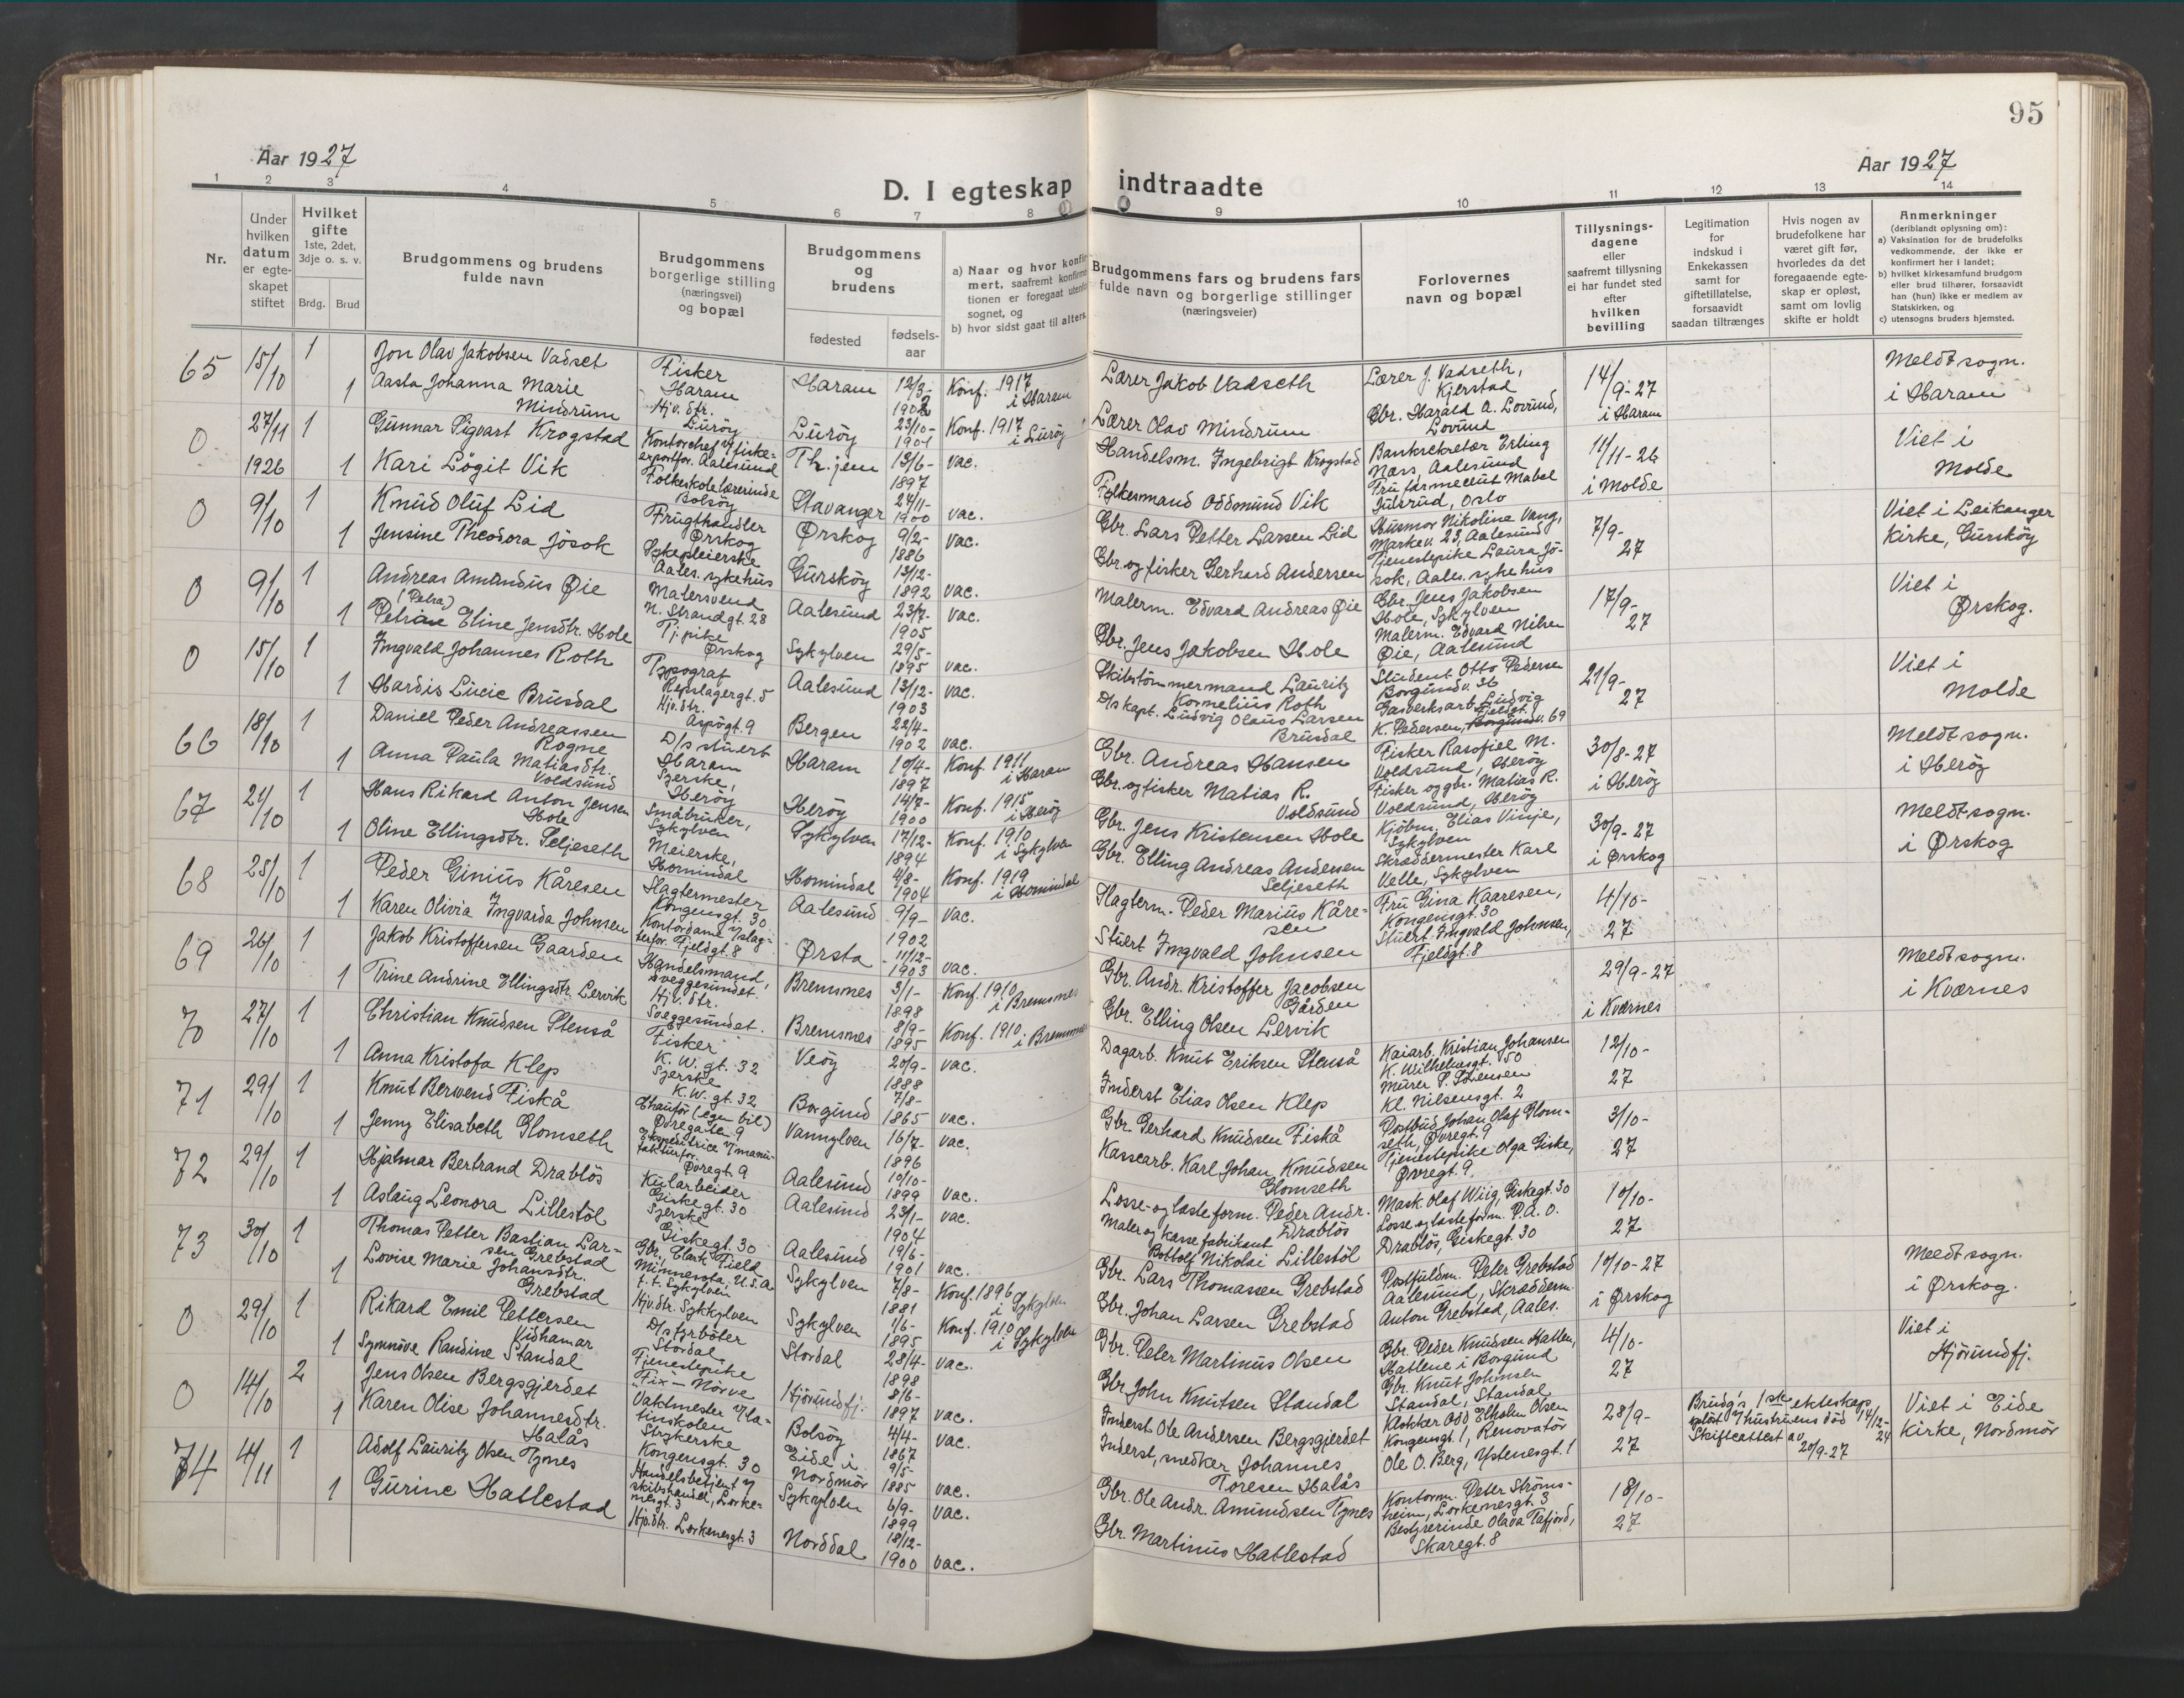 95
Aar 1927
Aar 1927
D. I egteskap indtraadte
1 2 3 4 5 6 7 8 9 10 11 12 13 14
Nr.
Under hvilken datum er egteskapet stiftet
Hvilket gifte
1ste, 2det, 3dje o. s. v.
Brdg. Brud
Brudgommens og brudens fulde navn
Brudgommens borgerlige stilling (næringsvei) og bopæl
Brudgommens og brudens
fødested
fødselsaar
a) Naar og hvor
b) hvor sidst gaat til alters.
Brudgommens fars og brudens fars fulde navn og borgerlige stillinger (næringsveier)
Forlovernes navn og bopæl
Tillysningsdagene eller saafremt tillysning ei har fundet sted efter hvilken bevilling
Legitimation for indskud i Enkekassen samt for giftetillatelse, forsaavidt saadan tiltrænges
Hvis nogen av brudefolkene har været gift før, hvorledes da det foregaaende egteskap er opløst, samt om lovlig skifte er holdt
Anmerkninger
(deriblandt oplysning om):
a) Vaksination for de brudefolks vedkommende, der ikke er konfirmert her i landet;
b) hvilket kirkesamfund brudgom eller brud tilhører, forsaavidt han (hun) ikke er medlem av Statskirken, og
c) utensogns bruders hjemsted.
65 15/10 1 Jon Olav Jakobsen Vadset Fisker Haram Haram 12/3-1902 Konf. 1917 i Haram Lærer Jakob Vadseth Lærer J. Vadseth, Kjerstad 14/9-27 Meldt sogn.
1 Aasta Johanna Marie Mindrum Hjv. dtr. Lurøy Lurøy 23/10-1901 Konf. 1917 i Lurøy Lærer Olav Mindrum Gbr. Harald A. Lovund, Lovund i Haram i Haram
0 27/11 1926 1 Gunnar Sigvart Krogstad Kontorchef v/ fiskeexportfor. Aalesund Th.jem 13/6-1897 vac. Handelsm. Ingebrigt Krogstad Banksekretær Erling Næss, Aalesund 11/11-26 Viet i
1 Kari Lögit Vik Folkeskolelærerinde Bolsöy Stavanger 24/11-1900 vac. Fylkesmand Oddmund Vik Fru farmeceut Mabel Julsrud, Oslo i Molde Molde
0 9/10 1 Knud Oluf Lid Frugthandler Ørskog Ørskog 9/2-1886 vac. Gbr. Lars Petter Larsen Lid Husmor Nikoline Vang, Markev. 23, Aalesund 7/9- Viet i Leikanger
1 Jensine Theodora Jösok Sykepleierske Aales. sykehus Gurskøy 13/12-1892 vac. Gbr. og fisker Gerhard Andersen Tjenestepike Laura Jösok, Aales. sykehus 27 Kirke, Gursköy
0 9/10 1 Andreas Amandus Øie Malersvend N. Strandgt. 28 Aalesund 23/7-1905 vac. Malerm. Edvard Andreas Øie Gbr. Jens Jakobsen Hole, Sykylven 17/9- Viet i
1 (Petra) Petrine Eline Jensdtr. Hole Tj.pike Ørskog Sykylven 29/5-1895 vac. Gbr. Jens Jakobsen Hole Malerm. Edvard Nilsen Øie, Aalesund 27 Ørskog.
0 15/10 1 Ingvald Johannes Roth Typograf Repslagergt. 5 Aalesund 13/12-1903 vac. Skibstömmermand Lauritz Kornelius Roth Student Otto Pedersen Borgundv. 36 21/9- Viet i
1 Hardis Lucie Brusdal Hjv. dtr. Aspögt. 9 Bergen 22/4-1902 vac. D/s kapt. Ludvig Olaus Larsen Brusdal Gasverksarb. Ludvig K. Pedersen, Borgundv. 69 27 Molde
66 18/10 1 Daniel Peder Andreassen Rogne D/s stuert Haram Haram 10/4-1897 Konf. 1911 i Haram Gbr. Andreas Hansen Fisker Rasofiel M. Voldsund, Herøy 30/8-27 Meldt sogn.
1 Anna Paula Matiasdtr. Voldsund Syerske, Herøy Herøy 14/7-1900 Konf. 1915 i Herøy Gbr. og fisker Matias R. Voldsund Fisker og gbr. Matias R. Voldsund, Herøy i Herøy i Herøy
67 21/10 1 Hans Rikard Anton Jensen Hole Småbruker, Sykylven Sykylven 17/12-1894 Konf. 1910 i Sykylven Gbr. Jens Kristensen Hole Kjöbm. Elias Vinje, Sykylven 30/9-27 Meldt sogn.
1 Oline Ellingsdtr. Seljeseth Meierske, Hornindal Hornindal 4/8-1904 Konf. 1919 i Hornindal Gbr. Elling Andreas Andersen Seljeseth Skræddermester Karl Velle, Sykylven i Ørskog i Ørskog
68 25/10 1 Peder Ginius Kåresen Slagtermester Kongensgt. 30 Aalesund 9/9-1902 vac. Slagterm. Peder Marius Kåresen Fru Gina Kaaresen, Kongensgt. 30 4/10-
1 Karen Olivia Ingvarda Johnsen Kontordame v/ slagterfor. Fjeldgt. 8 Ørsta 11/12-1903 vac. Stuert Ingvald Johnsen Stuert Ingvald Johnsen, Fjeldgt. 8 27
69 26/10 1 Jakob Kristoffersen Gaarden Handelsmand, Sveggesundet. Bremsnes 3/1-1898 Konf. 1910 i Bremsnes Gbr. Andr. Kristoffer Jacobsen Gården 29/9-27 Meldt sogn.
1 Trine Andrine Ellingsdtr. Lervik Hjv. dtr. Sveggesundet. Bremsnes 8/9-1895 Konf. 1910 i Bremsnes Gbr. Elling Olsen Lervik i Kværnes i Kværnes
70 27/10 1 Christian Knudsen Stenså Fisker K. W. gt. 32 Veöy 20/9-1888 vac. Dagarb. Knut Eriksen Stenså Kaiarb. Kristian Johansen K. Wilhelmsgt. 50 12/10-
1 Anna Kristofa Klep Syerske K. W. gt. 32 Borgund 7/8-1865 vac. Inderst Elias Olsen Klep Murer P. Sörensen Kl. Nilsensgt. 2 27
71 29/10 1 Knut Berwend Fiskå Chauför (egen bil) Øvregaten 9 Vannylven 16/7-1896 vac. Gbr. Gerhard Knudsen Fiskå Postbud Johan Olaf Glomseth, Øvregt. 9 3/10-
1 Jenny Elisabeth Glomseth Ekspeditrice v/ manufakturfor. Øvregt. 9 Aalesund 10/10-1899 vac. Kassearb. Karl Johan Knudsen Glomseth Tjenestepike Olga Giske, Øvregt. 9 27
72 29/10 1 Hjalmar Bertrand Drablös Kularbeider Giskegt. 30 Aalesund 23/1-1904 vac. Losse- og lasteform. Peder Andr. Drablös Mask. Olaf Wiig, Giskegt. 30 10/10-
1 Aslaug Leonora Lillestöl Syerske Giskegt. 30 Aalesund 19/6-1901 vac. Maler og kassefabrikant Bottolf Nikolai Lillestöl Losse og lasteform. P. A. O. Drablös, Giskegt. 30 27
73 30/10 1 Thomas Petter Bastian Larsen Grebstad Gbr., Clark Field Minnesota, U.S.A. f. t. Sykylven Sykylven 7/8-1881 Konf. 1896 i Sykylven Gbr. Lars Thomassen Grebstad Postfuldm. Peter Grebstad Aalesund, 10/10-27 Meldt sogn.
1 Lovise Marie Johansdtr. Grebstad Hjv. dtr. Sykkylven Sykylven 1/6-1895 Konf. 1910 i Sykylven Gbr. Johan Larsen Grebstad Skrædderm. Anton Grebstad, Aales. i Ørskog i Ørskog.
0 29/10 1 Rikard Emil Pettersen Vidhamar D/s fyrböter Stordal Stordal 28/4-1898 vac. Gbr. Peter Martinus Olsen Gbr. Peder Knudsen Hatlen, Hatlene i Borgund 4/10- Viet i
1 Synnöve Randine Standal Tjenestepike "Fix" - Nörve Hjörundfj. 8/6-1897 vac. Gbr. John Knutsen Standal Gbr. Knut Johnsen Standal, Standal 27 Hjörundfj.
0 14/10 2 Jens Olsen Bergsgjerdet Vaktmester v/ latinskolen Bolsöy 4/4-1867 vac. Inderst Ole Andersen Bergsgjerdet Klokker Odd Elholm Olsen Kongensgt. 1, 28/9- Brudg's 1ste ekteskap oplöst v/ hustruens död 14/12-24 Skifteattest av 20/9-27 Viet i Eide
1 Karen Olise Johannesdtr. Halås Strykerske Kongensgt. 30 Eide i Nordmör 9/5-1885 vac. Inderst, smed Johannes Toresen Halås Renovatör Ole O. Berg, Ystenesgt. 1 27 Kirke, Nordmör
74 4/11 1 Adolf Lauritz Olsen Tynes Handelsbetjent v/ skibshandel, Lorkenesgt. 3 Sykylven 6/9-1899 vac. Gbr. Ole Andr. Amundsen Tynes Kontorm. Peter Strömsheim, Lorkenesgt. 3 18/10-
1 Gurine Hallestad Hjv. dtr. Lorkenesgt. 3 Norddal 18/12-1900 vac. Gbr. Martinus Hallestad Bestyrerinde Olava Tafjord, Skaregt. 8 27